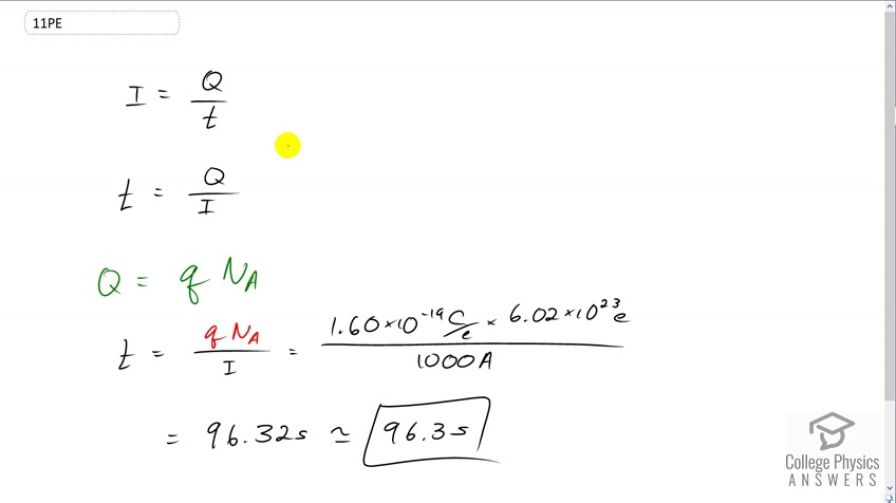 11PE
I = Q/t
t = Q/I
Q = q N_A
t = q N_A / I = 1.60×10^-19 C/e × 6.02×10^23 e / 1000A
= 96.32s ≃ 96.3s
College Physics
ANSWERS